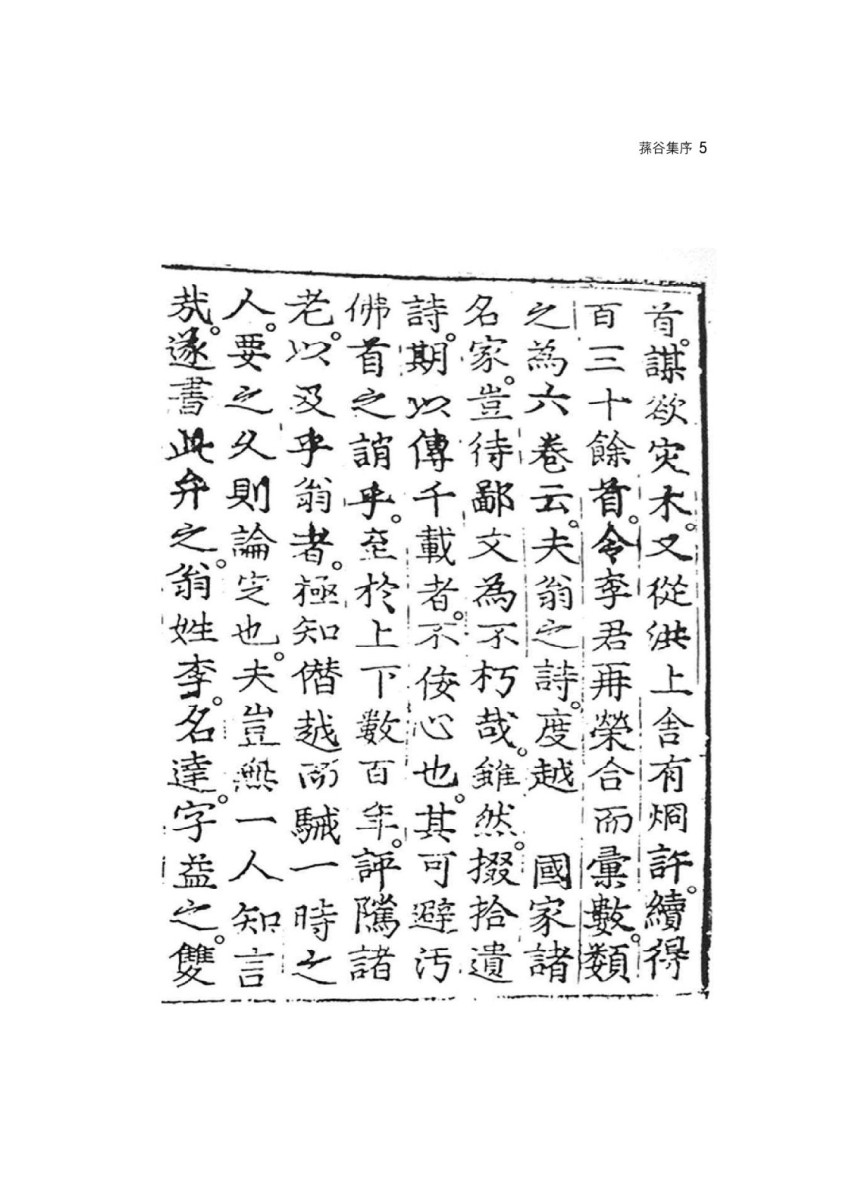 蓀谷集序 5
首。謀欲灾木。又從洪上舍有烱許。續得
百三十餘首。令李君再榮合而彙數。類
之為六卷云。夫翁之詩。度越　國家諸
名家。豈待鄙文為不朽哉。雖然。掇拾遺
詩。期以傳千載者。不佞心也。其可避汚
佛首之誚乎。至於上下數百年。評騭諸
老。以及乎翁者。極知僭越而駴一時之
人。要之久則論定也。夫豈無一人知言
哉。遂書此弁之。翁姓李。名達。字益之。雙